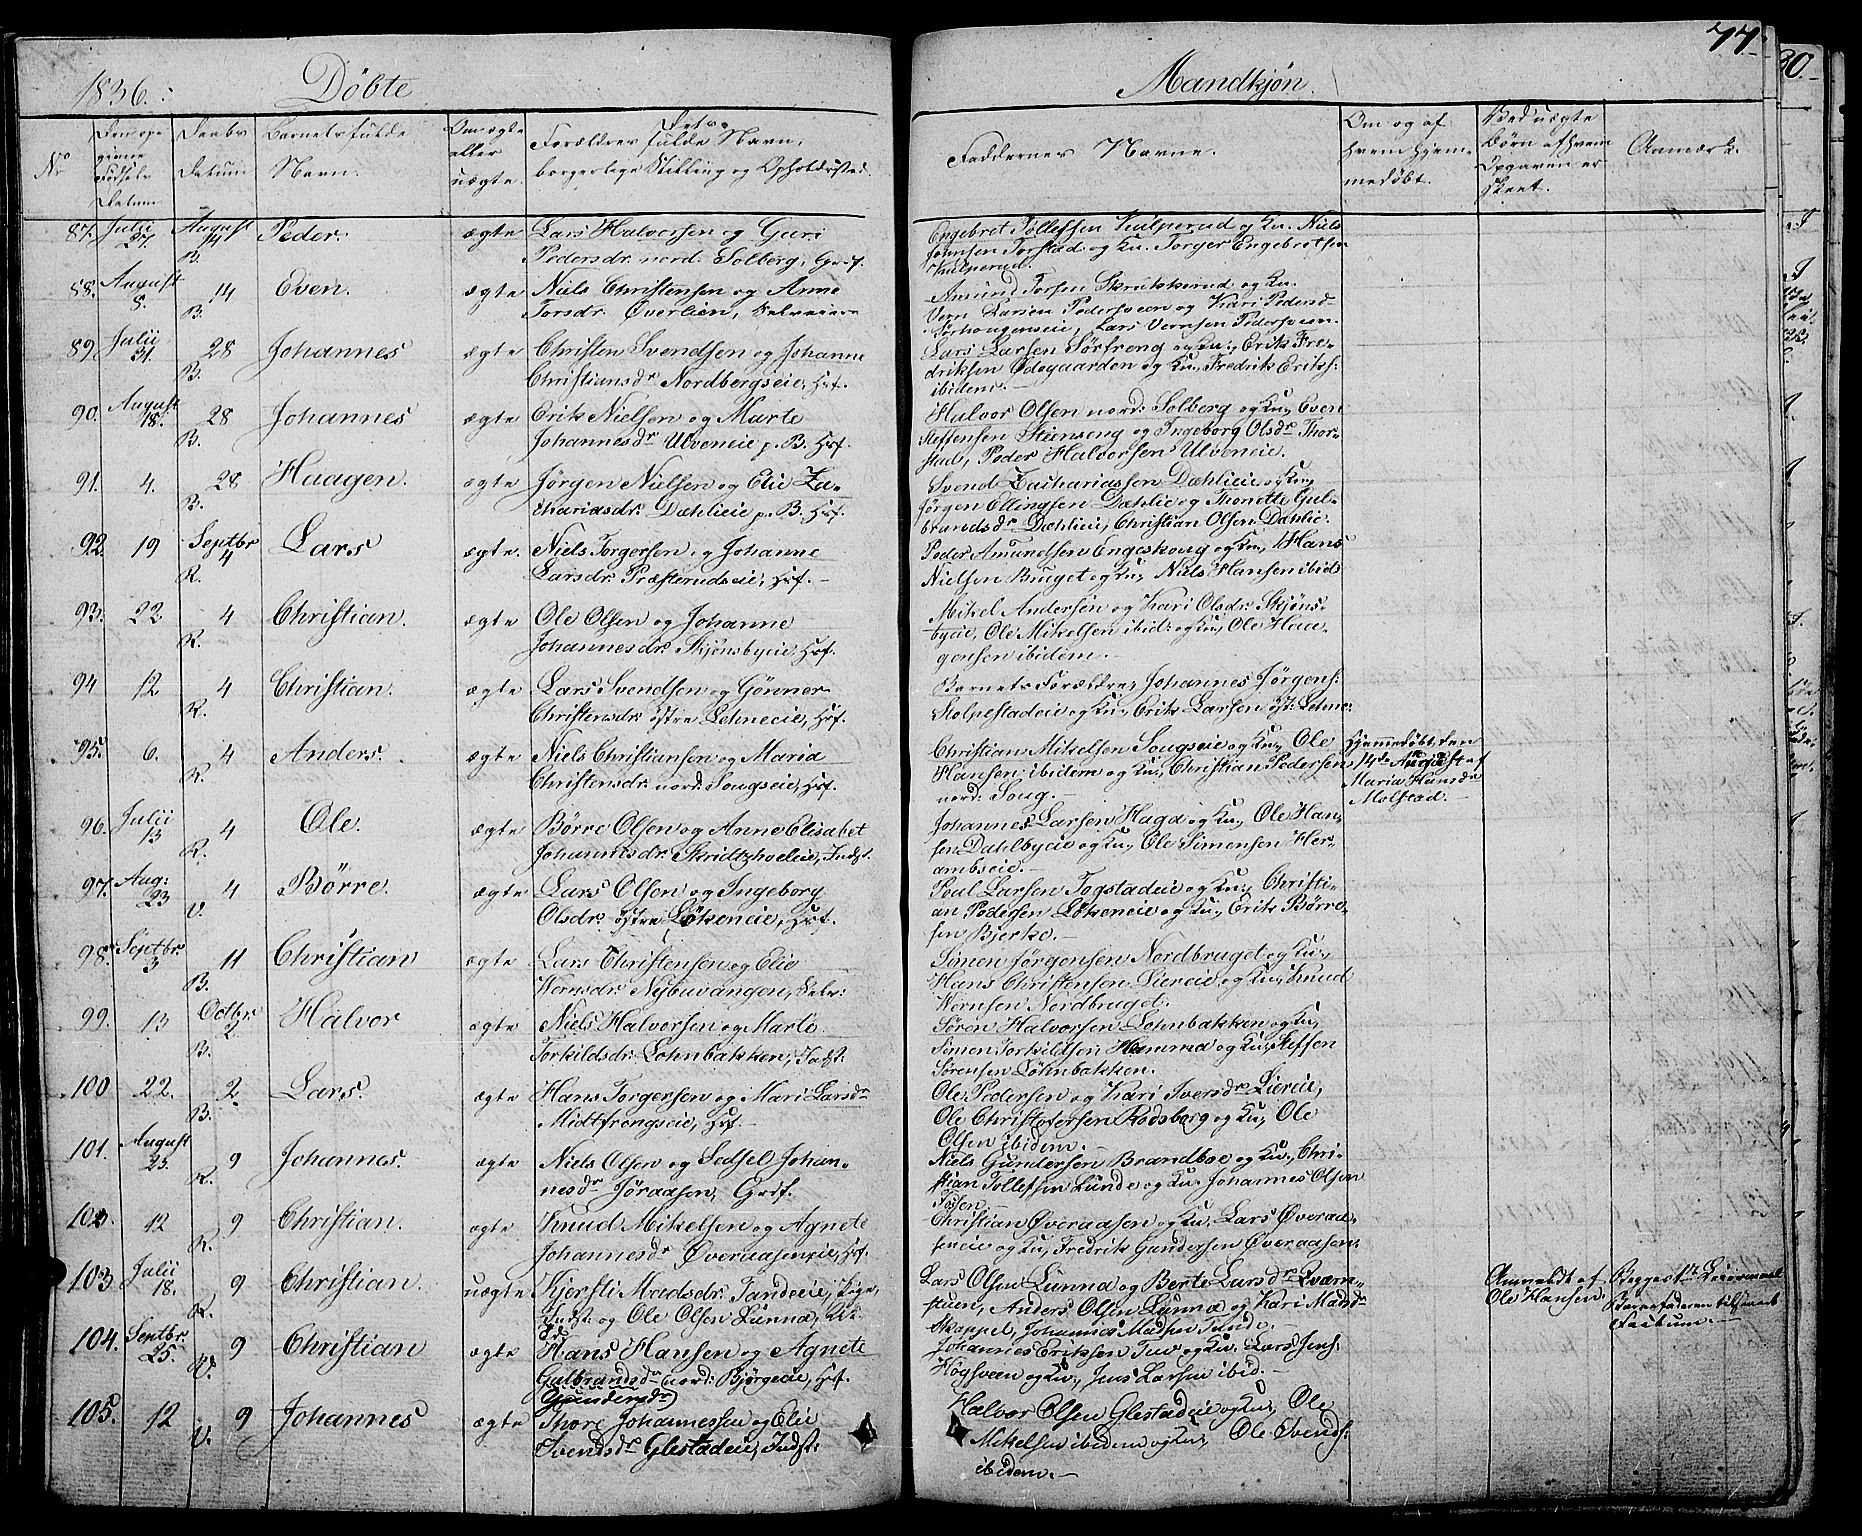 77.
1836.
Döbte
Mandkjøn.
No
Den opgivne Fødsels Datum
Daabs Datum
Barnets fulde Navn.
Om ægte eller uægte.
Forældres fulde Navn, borgerlige Stilling og Opholdssted.
Faddernes Navne.
Om og af hvem hjemmedøbt.
Ved uægte Børn af hvem Opgaven er skeet.
Anmærk.
87. Julii 27. August 14 B. Peder. ægte
Lars Halvorsen og Guri
Pedersdr. nord. Solberg, Grdf.
Engebret Tollefsen Kulperud og Ku. Niels
Johnsen Torstad og Ku. Torger Engebretsen
Kulperud.
88. August 8. 14 B. Even. ægte
Niels Christensen og Anne
Torsdr. Överlien, Selveiere
Amund Torsen Skrukkerud og Ku.
Vern Larsen Pedersveen og Kari Pedersd
Lars Vernsen Pedersveen.
89. Julii 31. 28 B. Johannes ægte
Christen Svendsen og Johanne
Christiansdr Nordbergseie, Hsf.
Lars Larsen Sörfreng og Ku., Erik Fre-
driksen Ödegaarden og Ku., Fredrik Eriks:
ibidem.
90. August 18. 28 B. Johannes ægte
Erik Nielsen og Marte
Johannesdr Ulveneie p. B. Hsf.
Halvor Olsen nord: Solberg og Ku., Even
Steffensen Steenseng og Ingeborg Olsdr Thor-
stad, Peder Halvorsen Ulveneie.
91. 4. 28 B. Haagen. ægte
Jørgen Nielsen og Elie Za-
chariasdr. Dæhlieie p. B. Hsf.
Svend Zachariassen Dæhlieie og Ku,
Jørgen Ellingsen Dæhlie og Thonette Gul-
brandsdr Dæhlieie, Christian Olsen Dahlie:
92. 19 Septbr 4 R. Lars ægte.
Niels Torgersen og Johanne
Larsdr. Præsterudseie, Hsf.
Peder Amundsen Engeskoug og Ku., Hans
Nielsen Bruget og Ku, Niels Hansen ibid
93. 22 4 R. Christian. ægte
Ole Olsen og Johanne
Johannesdr. Skjønsbyeie Hsf.
Mikel Andersen og Kari Olsdr. Skjøns-
byeie, Ole Mikelsen ibid: og Ku, Ole Haa-
gensen ibidem.
94 12 4 R. Christian. ægte
Lars Svendsen og Gønner
Christensdr. østre Lehneeie, Hsf.
Barnets Forældre, Johannes Jørgens:
Stolpestadeie og Ku., Erik Larsen øst: Lehne:
95. 6. 4 R. Anders. ægte
Niels Christiansen og Maria
Christensdr. nord: Sougseie, Hsf.
Christian Mikelsen Sougseie og Ku., Ole
Hansen ibidem og Ku., Christian Pedersen
nord: Soug.
Hjemmedøbt den
14de August af
Maria Hansdr
Molstad.
96. Julii 13 4 R. Ole. ægte
Börre Olsen og Anne Elisabet
Johannesdr. Skridtzholeie, Indst.
Johannes Larsen Haga og Ku., Ole Han-
sen Dahlbyeie og Ku., Ole Simensen Her-
ambseie.
97. Aug: 23 4 V. Börre. ægte
Lars Olsen og Ingeborg
Olsdr. östre Lökeneie, Hsf.
Poul Larsen Togstadeie og Ku., Christi-
an Pedersen Lökeneie og Ku., Erik Börre-
sen Bjerke.
98. Septbr. 3 11 B. Christian ægte
Lars Christensen og Elie
Wernsdr. Nybuvangen, Selv:
Simen Jørgensen Nordbruget og Ku,
Hans Christensen Liereie og Ku., Knud
Wernsen Nordbruget.
99. 13 Octbr. 2. B. Halvor ægte
Niels Halvorsen og Marte
Torkildsdr. Lohnbakken, Indst:
Sören Halvorsen Lohnbakken og Ku,
Simen Torkildsen Hemma og Ku, Steffen
Sörensen Löhnbakken.
100 22. 2 B. Lars. ægte
Hans Torgersen og Mari Larsdr
Midtfrengseie, Hsf.
Ole Pedersen og Kari Iversdr Liereie,
Ole Christophersen Rodsberg og Ku, Ole
Olsen ibidem.
101. August 23. 9 R. Johannes. ægte
Niels Olsen og Sedsel Johan-
nesdr Jöraasen, Grdf.
Niels Gundersen Brandboe og Ku., Chri-
stian Tollefsen Lunde og Ku. Johannes Olsen
102. 12 9 R. Christian. ægte
Knud Mikelsen og Agnete
Johannesdr Överaaseneie, Hsf.
Christian Överaasen og Ku., Lars Överaa-
seneie og Ku, Fredrik Gundersen Överaasen.
103 Julii 18. 9 R. Christian. uægte
Kjersti Madsdr. Tandeeie, Pige,
Indst: og Ole Olsen Lunna,
Lars Olsen Lunna og Berte Larsdr Kværn-
stuen, Anders Olsen Lunna og Kari Madsd
Skappel, Johannes Madsen Tande.
Anmeldt af
Ole Hansen.
Begges 1te Leiermaal
Barnefaderen tilstaaet
Factum.
104. Septbr. 25. 9 V. Christian ægte
Hans Hansen og Agnete
Gulbrandsdr nord: Bjørgeeie, Hsf.
Gundersdr)
Johannes Eriksen Tuv og Ku. Lars Jens:
Høgsveen og Ku., Jens Larsen ibid.
105. 12 9 V. Johannes ægte
Thore Johannessen og Elie
Svendsdr Glestadeie, Indst:
Halvor Olsen Glestadeie og Ku, Ole
Mikelsen ibidem og Ku, Ole Svends:
ibidem.